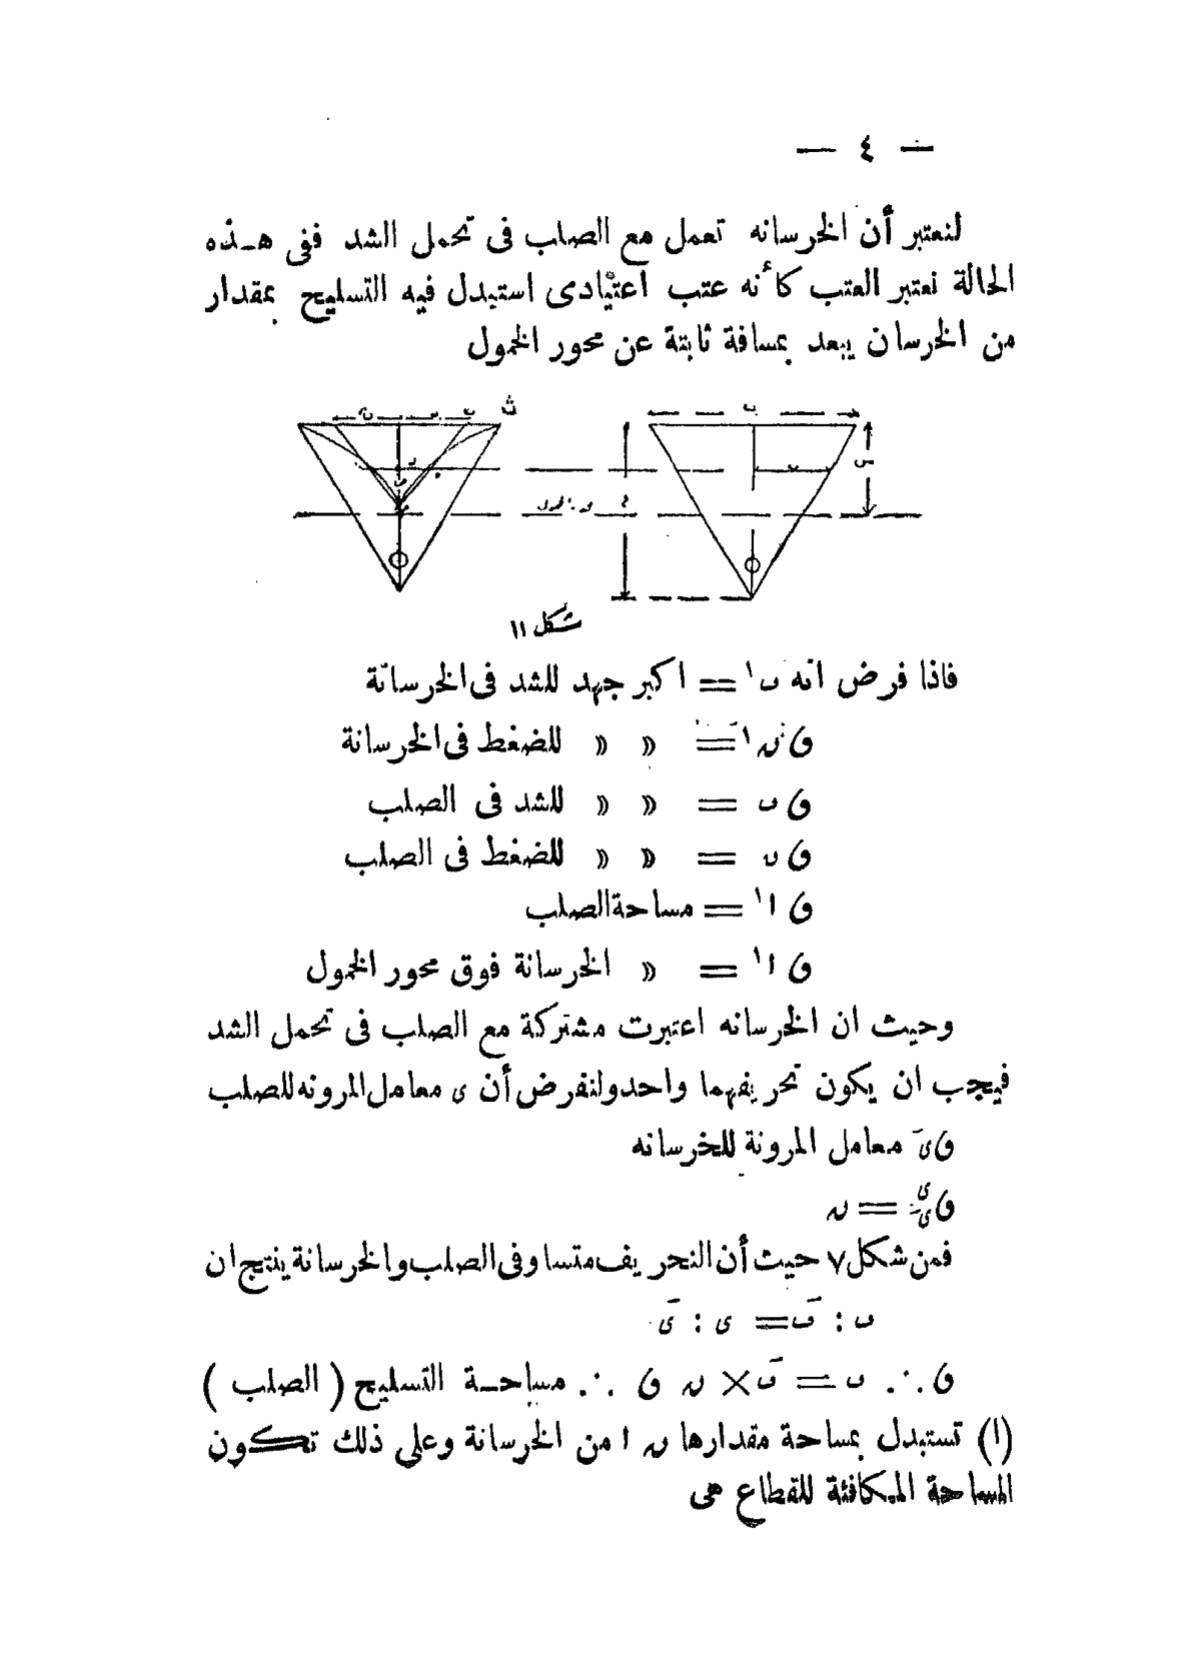 — ٤ —
لنعتبر أن الخرسانه تعمل مع الصلب فى تحمل الشد ففى هـذه
الحالة نعتبر العتب كأنه عتب اعتيادى استبدل فيه التسليح بمقدار
من الخرسان يبعد بمسافة ثابتة عن محور الخمول
شكل ١١
فاذا فرض انه ب١ = اكبر جهد للشد فى الخرسانة
و ں١َ = » » للضغط فى الخرسانة
و ب = » » للشد فى الصلب
و ں = » » للضغط فى الصلب
و ا١ = مساحة الصلب
و ا١ = » الخرسانة فوق محور الخمول
وحيث ان الخرسانه اعتبرت مشتركة مع الصلب فى تحمل الشد
فيجب ان يكون تحريفهما واحد ولنفرض أن ى معامل المرونه للصلب
وىَ معامل المرونة للخرسانه
و ى/ىَ = ں
فمن شكل ٧ حيث أن النحريف متساو فى الصلب والخرسانة ينتج ان
ب : بَ = ى : ىَ
و ∴ ب = بَ × ں و ∴ مساحـة التسليح ( الصلب )
(ا) تستبدل بمساحة مقدارها ں ا من الخرسانة وعلى ذلك تكون
المساحة المكافئة للقطاع هى